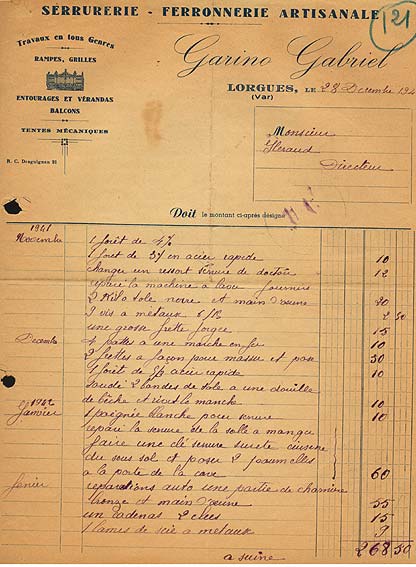 SERRURERIE - FERRONNERIE ARTISANALE
121
Travaux en tous Genres
RAMPES, GRILLES
ENTOURAGES ET VÉRANDAS
BALCONS
TENTES MÉCANIQUES
R. C. Draguignan
Garino Gabriel
LORGUES, LE 28 Decembre 194
(Var)
Monsieur
Heraud
Directeur
Doit le montant ci-après désigné
1941
Novembre 1 forêt de 4%
1 foret de en acier rapide 10
changer un ressort serrure de 12
reparé la machine a laver fournuri
2 Kilo tole noire et main 20
3 vis a métaux 2 50
une grosse frette forgee 15
Decembre 4 pattes a une marche en fer 10
2 frettes a façon pour masse et pose 30
1 forêt de acier rapide 10
Soudé 2 bandes de tole a une douille
de bêche et rivés le manche 10
1942
Janvier 1 poignée blanche pour serrure 10
reparé la serrure de la salle a mangé
faire une clé serrure sureté cuisine
du sous sol et poser 2 paumelles
a la porte de la cave 60
fevrier reparations auto une partie de charnière
bronze et main 55
un cadenas 2 clées 15
1 lames de scie a metaux 9
268 50
a suivre